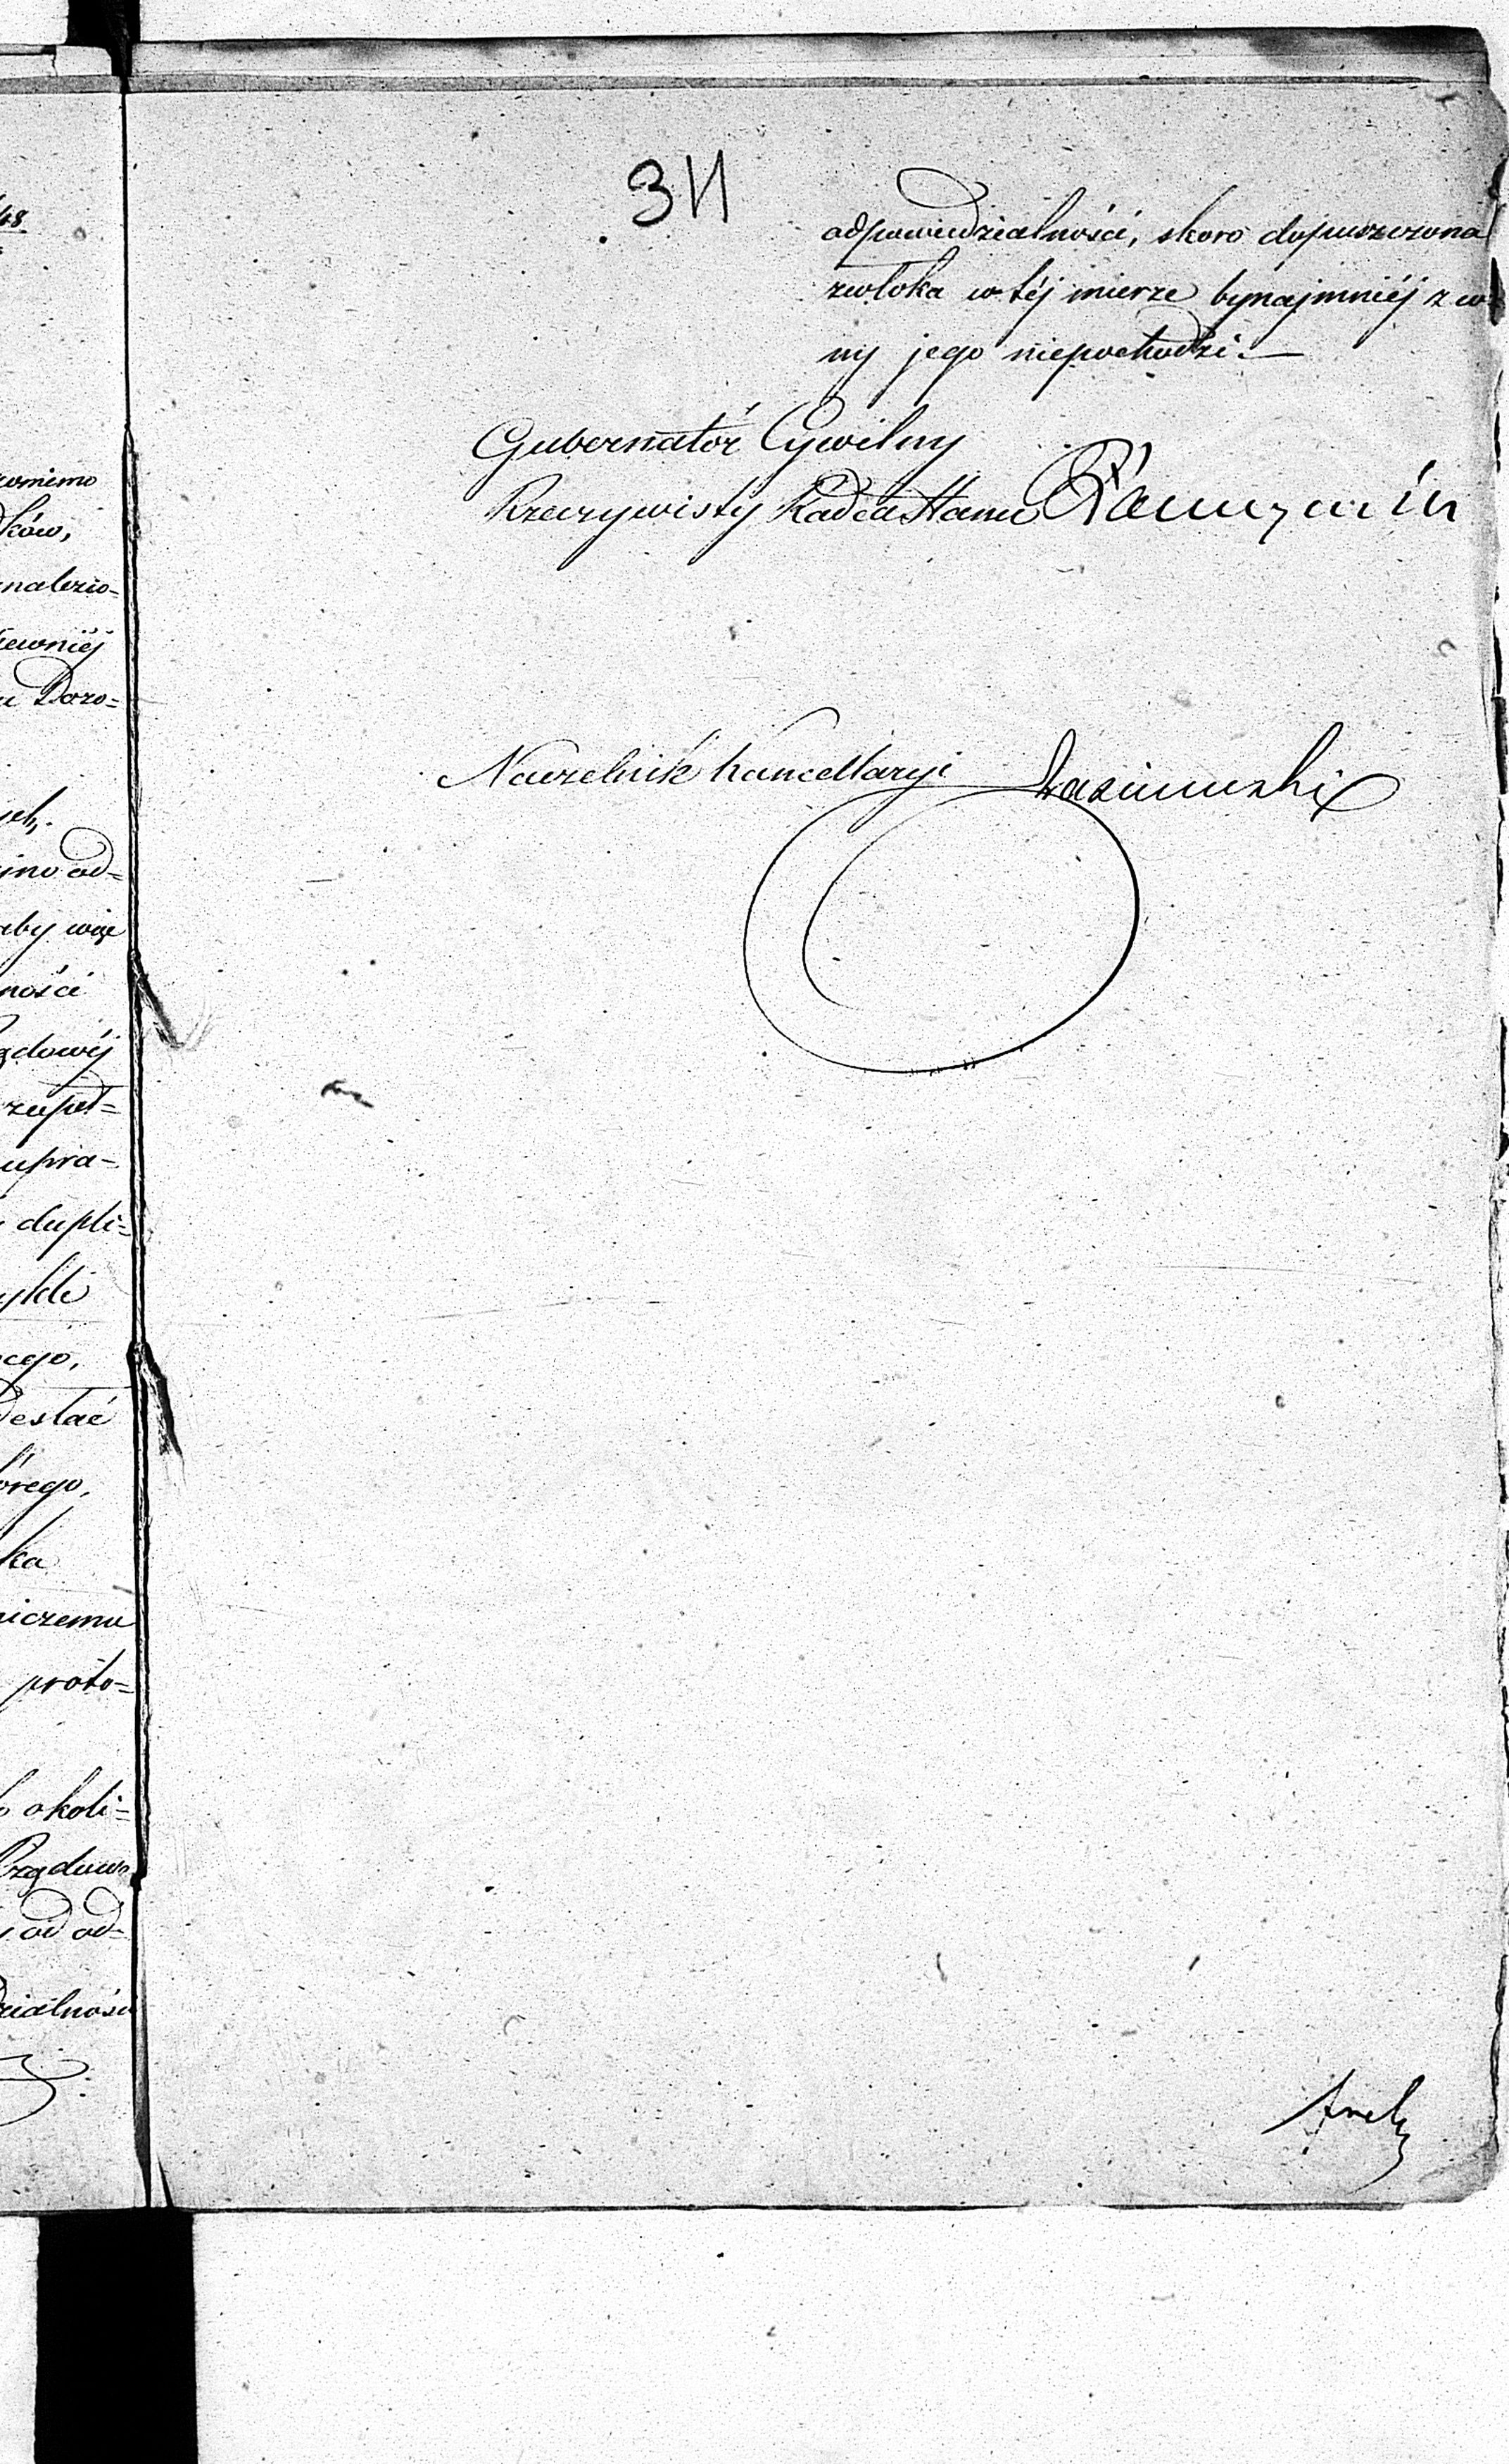 48
311
odpowiedzialności, skoro dopuszczona
zwłoka w téj mierze bynajmniéj z wi
ny jego niepochodzi. —
Gubernator Cywilny
Rzeczywisty Radca Stanu
Naczelnik Kancellaryi
pomimo
ków,
nalezio=
pewniéj
u Doro=
ych.
ino od=
aby więc
ności
ządowéj
zupeł=
upra=
dupli=
ykłe
cego,
desłać
tórego,
ka
niczemu
proto=
o okoli=
Rządowa
od od=
dzialności